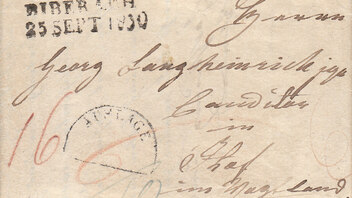 BIBERACH
25 SEPT 1830
Herrn
Georg Langheinrich jgr
Conditor
in
Hof
im Vogtland
AUFLAGE
16
6